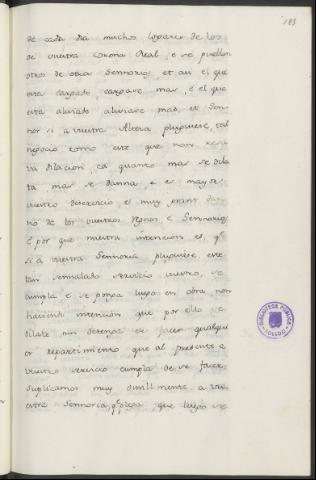 183
de cada dia muchos logares de los
de vuestra Corona Real, e se pueblan
otros de otros Sennorios, et asi el que
era cargado cargase mas, e el que
esta aliviado aliviase mas, et Sen-
nor si a vuestra Alteza pluguiese, tal
negocio como este que non reci-
ba dilacion, ca quanto mas se dila-
ta mas se danna, e es mas de-
servicio, e muy grant dan-
no de los vuestros Regnos, e Sennorios,
E por que nuestra intencion es, q.e
si a vuestra Sennoria pluguiere, este
tan sennalado servicio vuestro, se
cumpla e se ponga luego en obra, non
haciendo intencion que por ello se
dilate, nin detenga de facer qualqui-
er repartimiento que al presente a
vuestro servicio cumpla de se facer,
Suplicamos muy omillmente a vu-
estra Sennoria, que luego se
BIBLIOTECA PUBLICA
TOLEDO